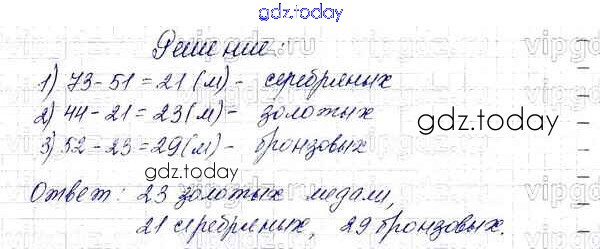 gdz.today
Решение:
1) 73 - 51 = 21 (м) - серебряных
2) 44 - 21 = 23 (м) - золотых
3) 52 - 23 = 29 (м) - бронзовых
gdz.today
Ответ: 23 золотых медали,
21 серебряных, 29 бронзовых.